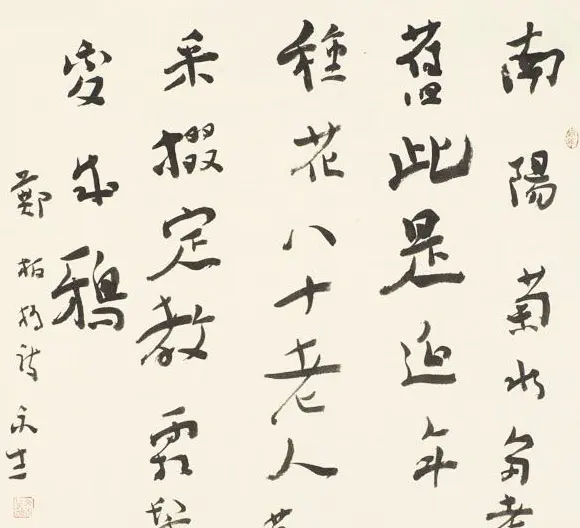 南陽菊水多耆
舊此是延年
種花八十老人
采掇定教霜鬢
變成鴉
鄭板橋詩